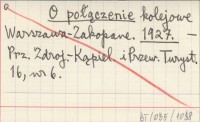 a
O połączenie kolejowe
Warszawa-Zakopane. 1927. —
Prz. Zdroj.-Kąpiel. i Przew. Turyst.
16, nr 6.
BJ/035/1088